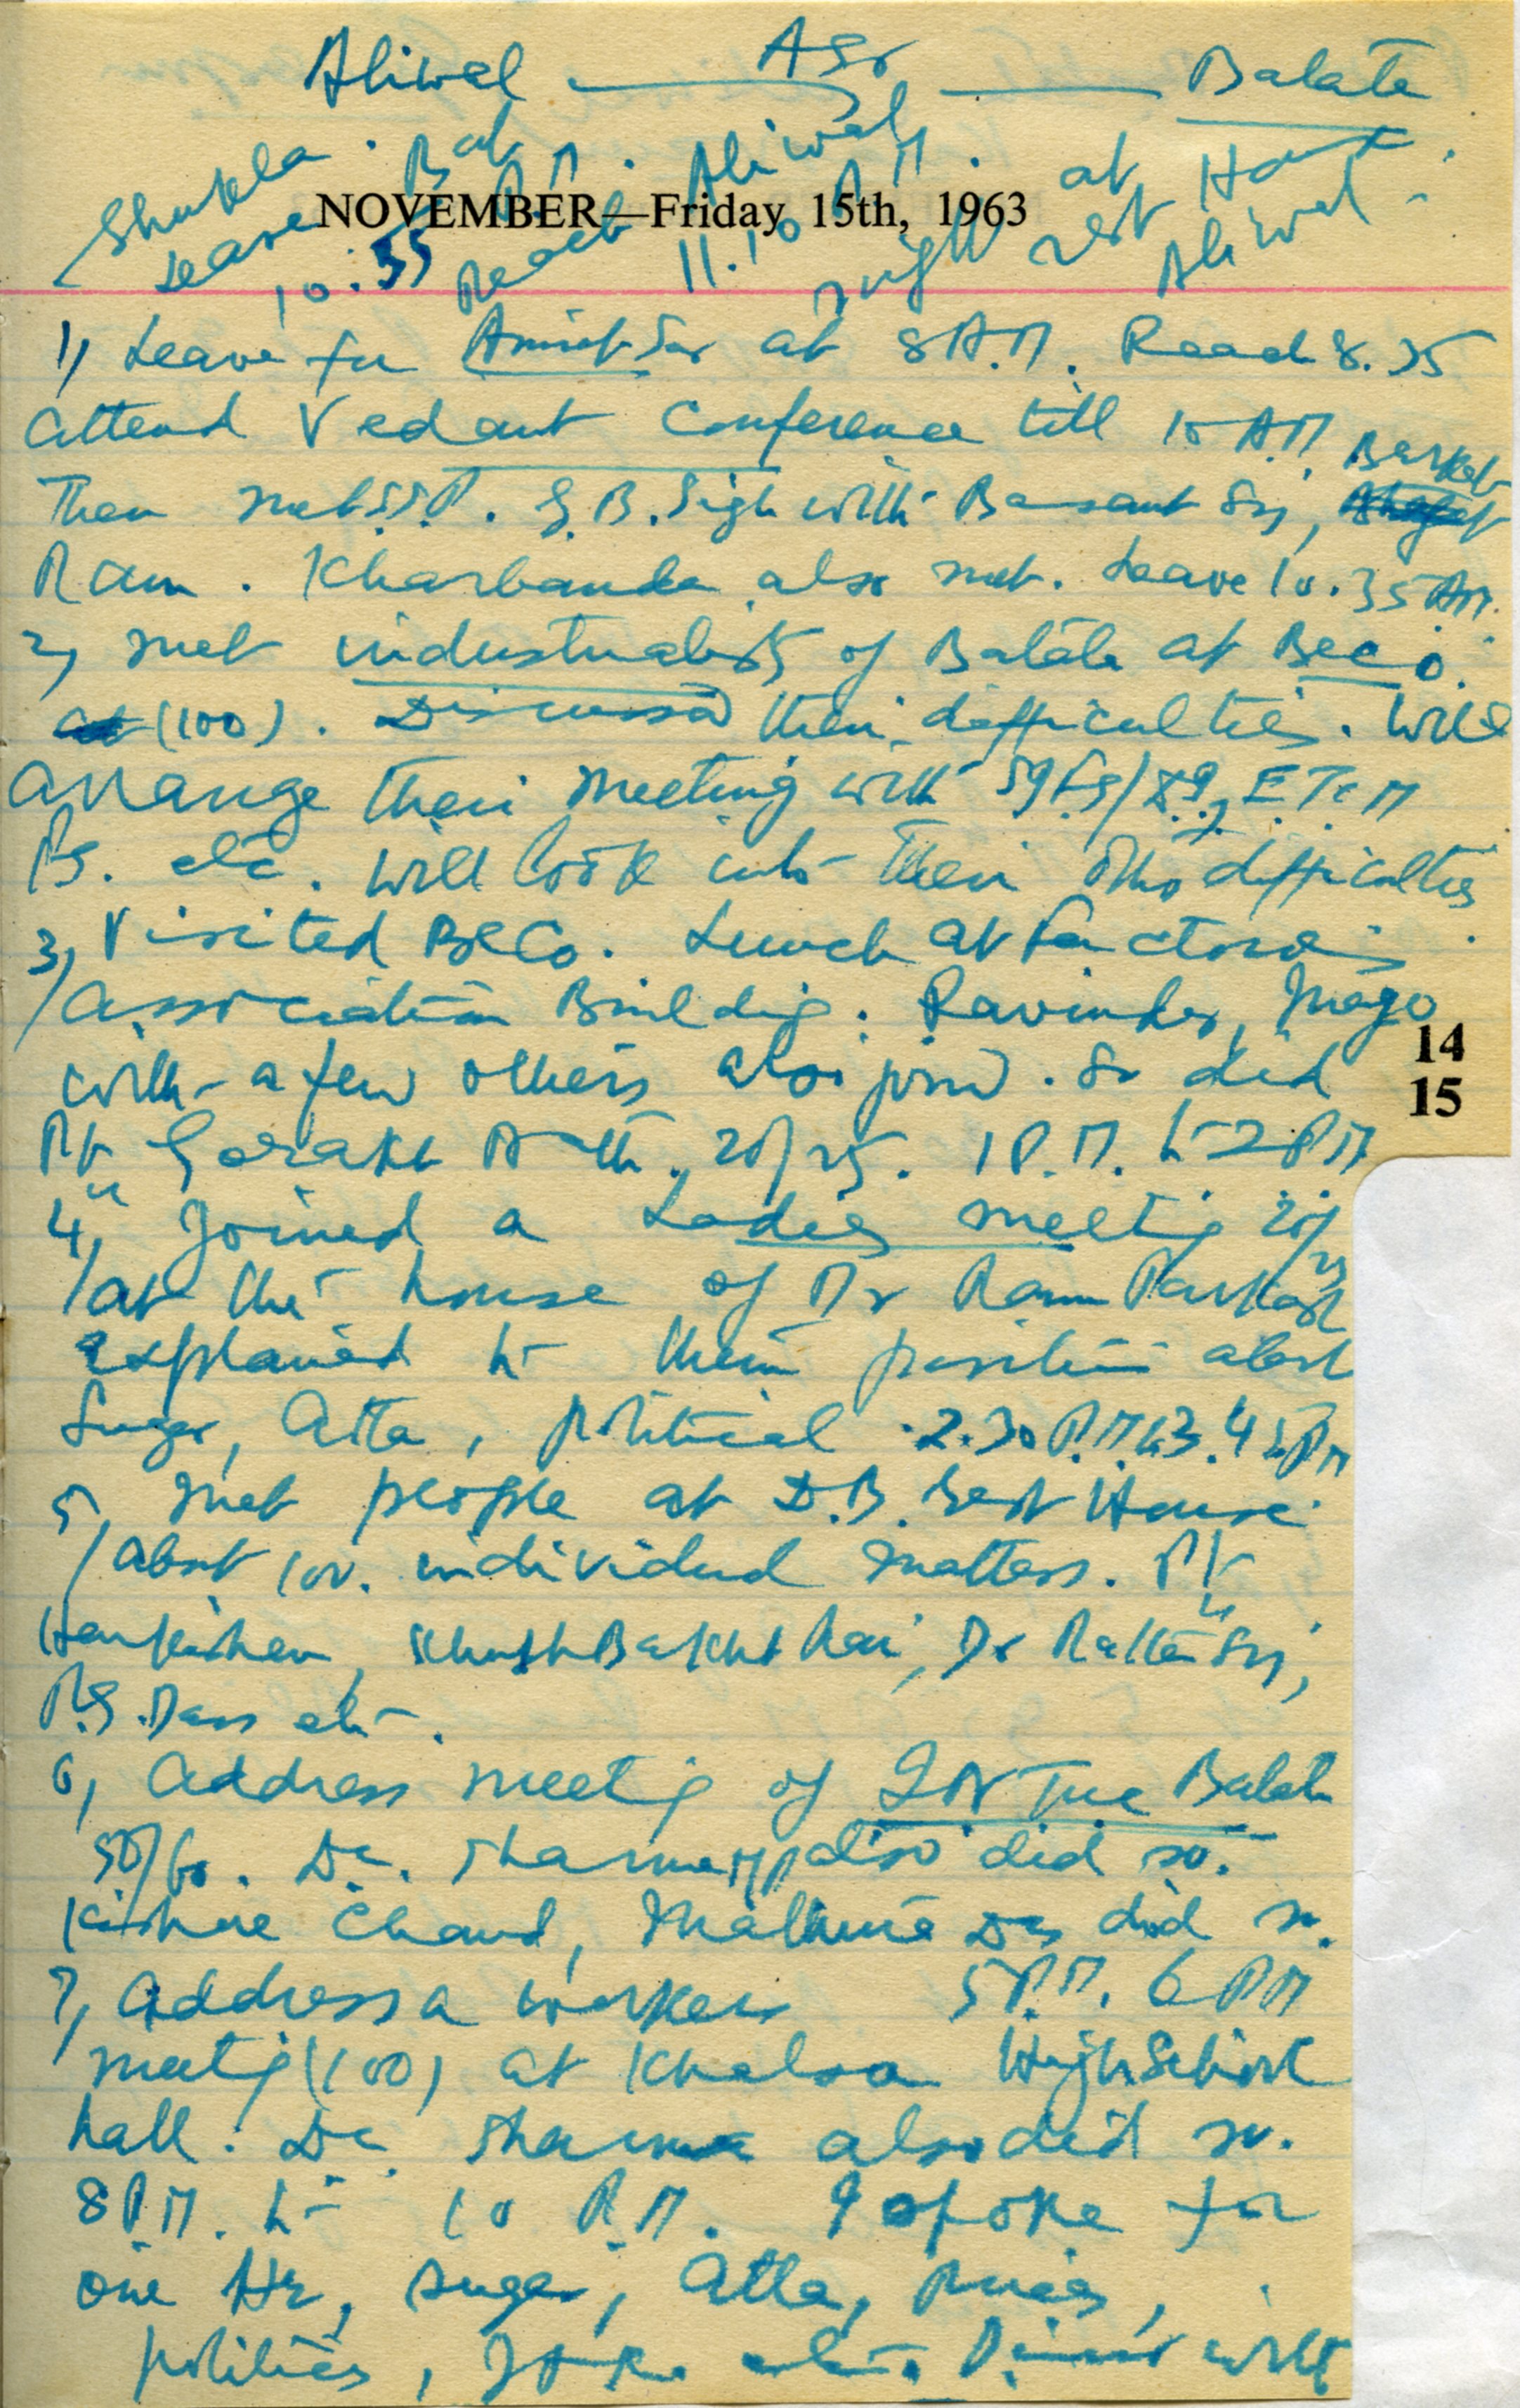 Aliwal — ASR — Batala
NOVEMBER—Friday 15th, 1963
Shukla. Bat Aliwal. at
Leave 10.55 P.M. Reach 11.10 P.M. night rest Aliwal.
1) Leave for Amritsar at 8 A.M. Reach 8.35
attend Vedant Conference till 10 A.M.
Then met S.S.P. G.B. Singh with Basant Sg, Barkat
Ram. Kharbanda also met. Leave 10.35 AM.
2) met industrialists of Batala at Beco.
(100). Discussed their difficulties. Will
arrange their meeting with E.T.C M
Ps. etc. will look into their other difficulties
3) Visited BECo. Lunch at Factories
Association Building. Ravinder, Mago
with a few others also joined. So did
Pt Gorakh Nath. 20/25. 1 P.M. to 2 PM
4) Joined a Ladies meetig 20/25
at the house of Dr Ram Parkash
explained to them position abt
Sugar, Atta, political. 2.30 P.M. to 3.45 PM
5) met people at D.B. Rest House
about 100. individual matters. Pt
Harkishan, Khush Bakht Rai, Dr Rattan Sg,
R.S. Dass etc.
6) Address meetig of INTUC Batala
50/60. D.C. Sharma MP also did so.
Kishore Chand, Mathura Das did so.
7) Address a workers 5 P.M. 6 PM
meetig (100) at Khalsa High School
hall. D.C. Sharma also did so.
8 P.M. to 10 P.M. I spoke for
one Hr, sugar, Atta, Prices,
politics, with
14
15